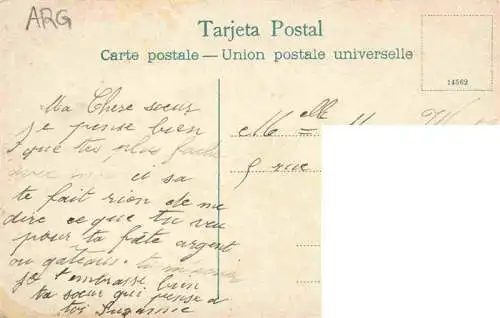 ARG
Tarjeta Postal
Carte postale — Union postale universelle
14562
Ma Chere soeur
je pense bien
que tu es plus
avec moi et sa
te fait rion de me
dire ce que tu veu
pour ta fête argent
ou gateaux
je t'embrasse bien
ta soeur qui pense a
toi Suzanne
Melle
9 rue